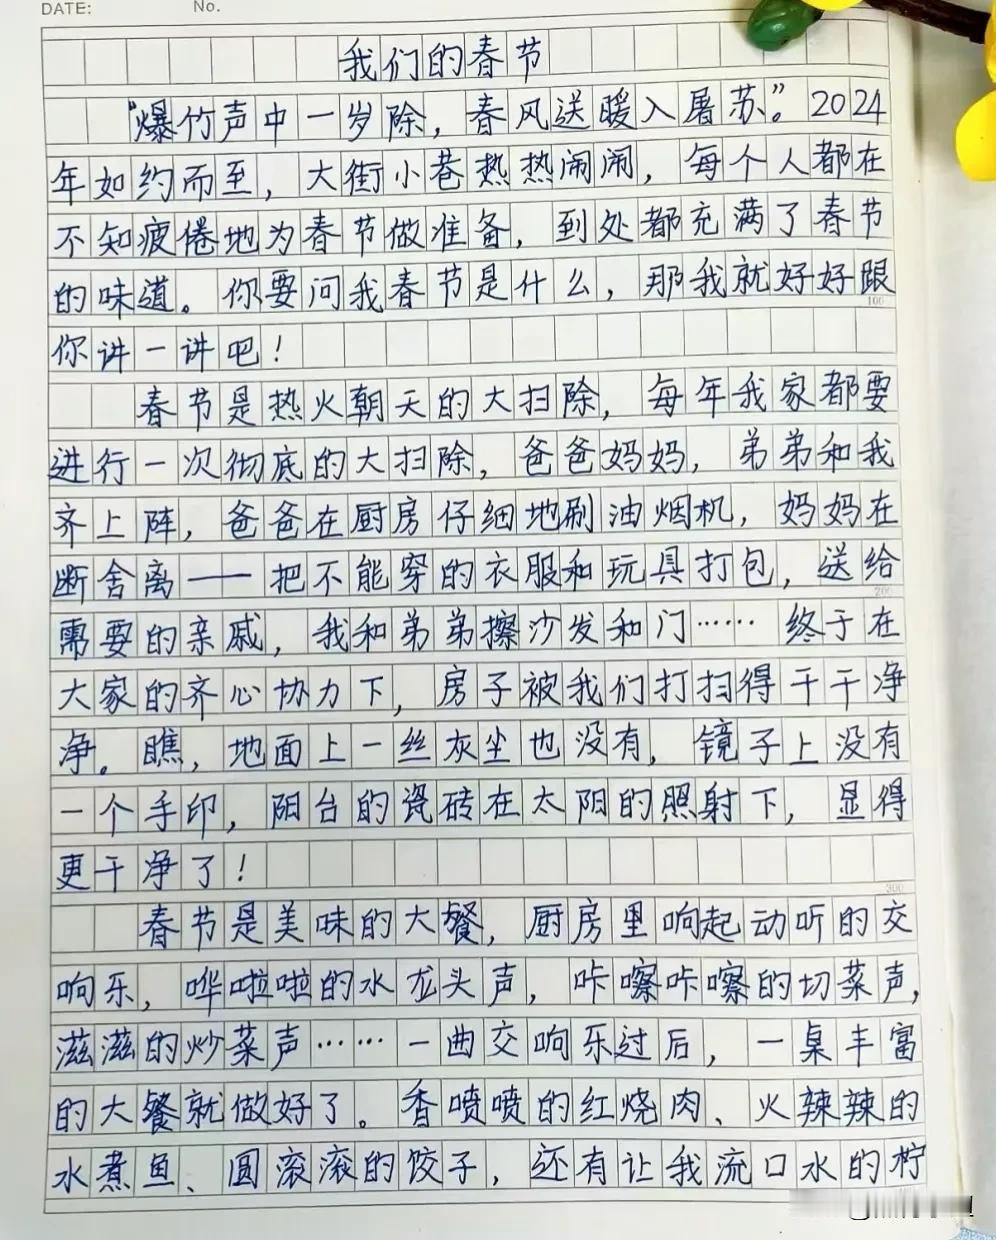 DATE: No.
我们的春节
“爆竹声中一岁除，春风送暖入屠苏。”2024
年如约而至，大街小巷热热闹闹，每个人都在
不知疲倦地为春节做准备，到处都充满了春节
的味道。你要问我春节是什么，那我就好好跟
100
你讲一讲吧！
春节是热火朝天的大扫除，每年我家都要
进行一次彻底的大扫除，爸爸妈妈，弟弟和我
齐上阵，爸爸在厨房仔细地刷油烟机，妈妈在
断舍离——把不能穿的衣服和玩具打包，送给
200
需要的亲戚，我和弟弟擦沙发和门……终于在
大家的齐心协力下，房子被我们打扫得干干净
净。瞧，地面上一丝灰尘也没有，镜子上没有
一个手印，阳台的瓷砖在太阳的照射下，显得
更干净了！
300
春节是美味的大餐，厨房里响起动听的交
响乐，哗啦啦的水龙头声，咔嚓咔嚓的切菜声，
滋滋的炒菜声……一曲交响乐过后，一桌丰富
的大餐就做好了。香喷喷的红烧肉、火辣辣的
水煮鱼、圆滚滚的饺子，还有让我流口水的柠